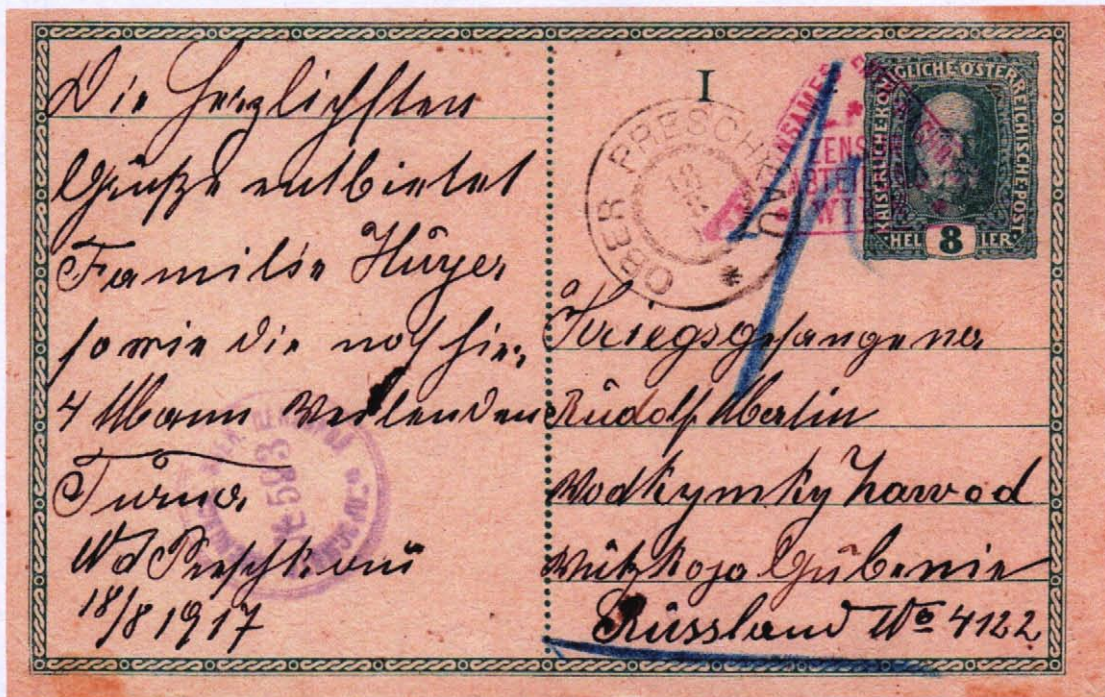 Die herzlichsten
Grüße entbietet
Familie Hüyer
sowie die noch hier
4 Mann weilenden
Turner
Nd Preschkau
18/8 1917
I
OBER PRESCHKAU
KAISERLICHE KÖNIGLICHE ÖSTERREICHISCHE POST
HELLER
8
Kriegsgefangener
Rudolf Merlin
Wodkymky Zawod
Wützkoja Gübernie
Rüssland No 4122
583